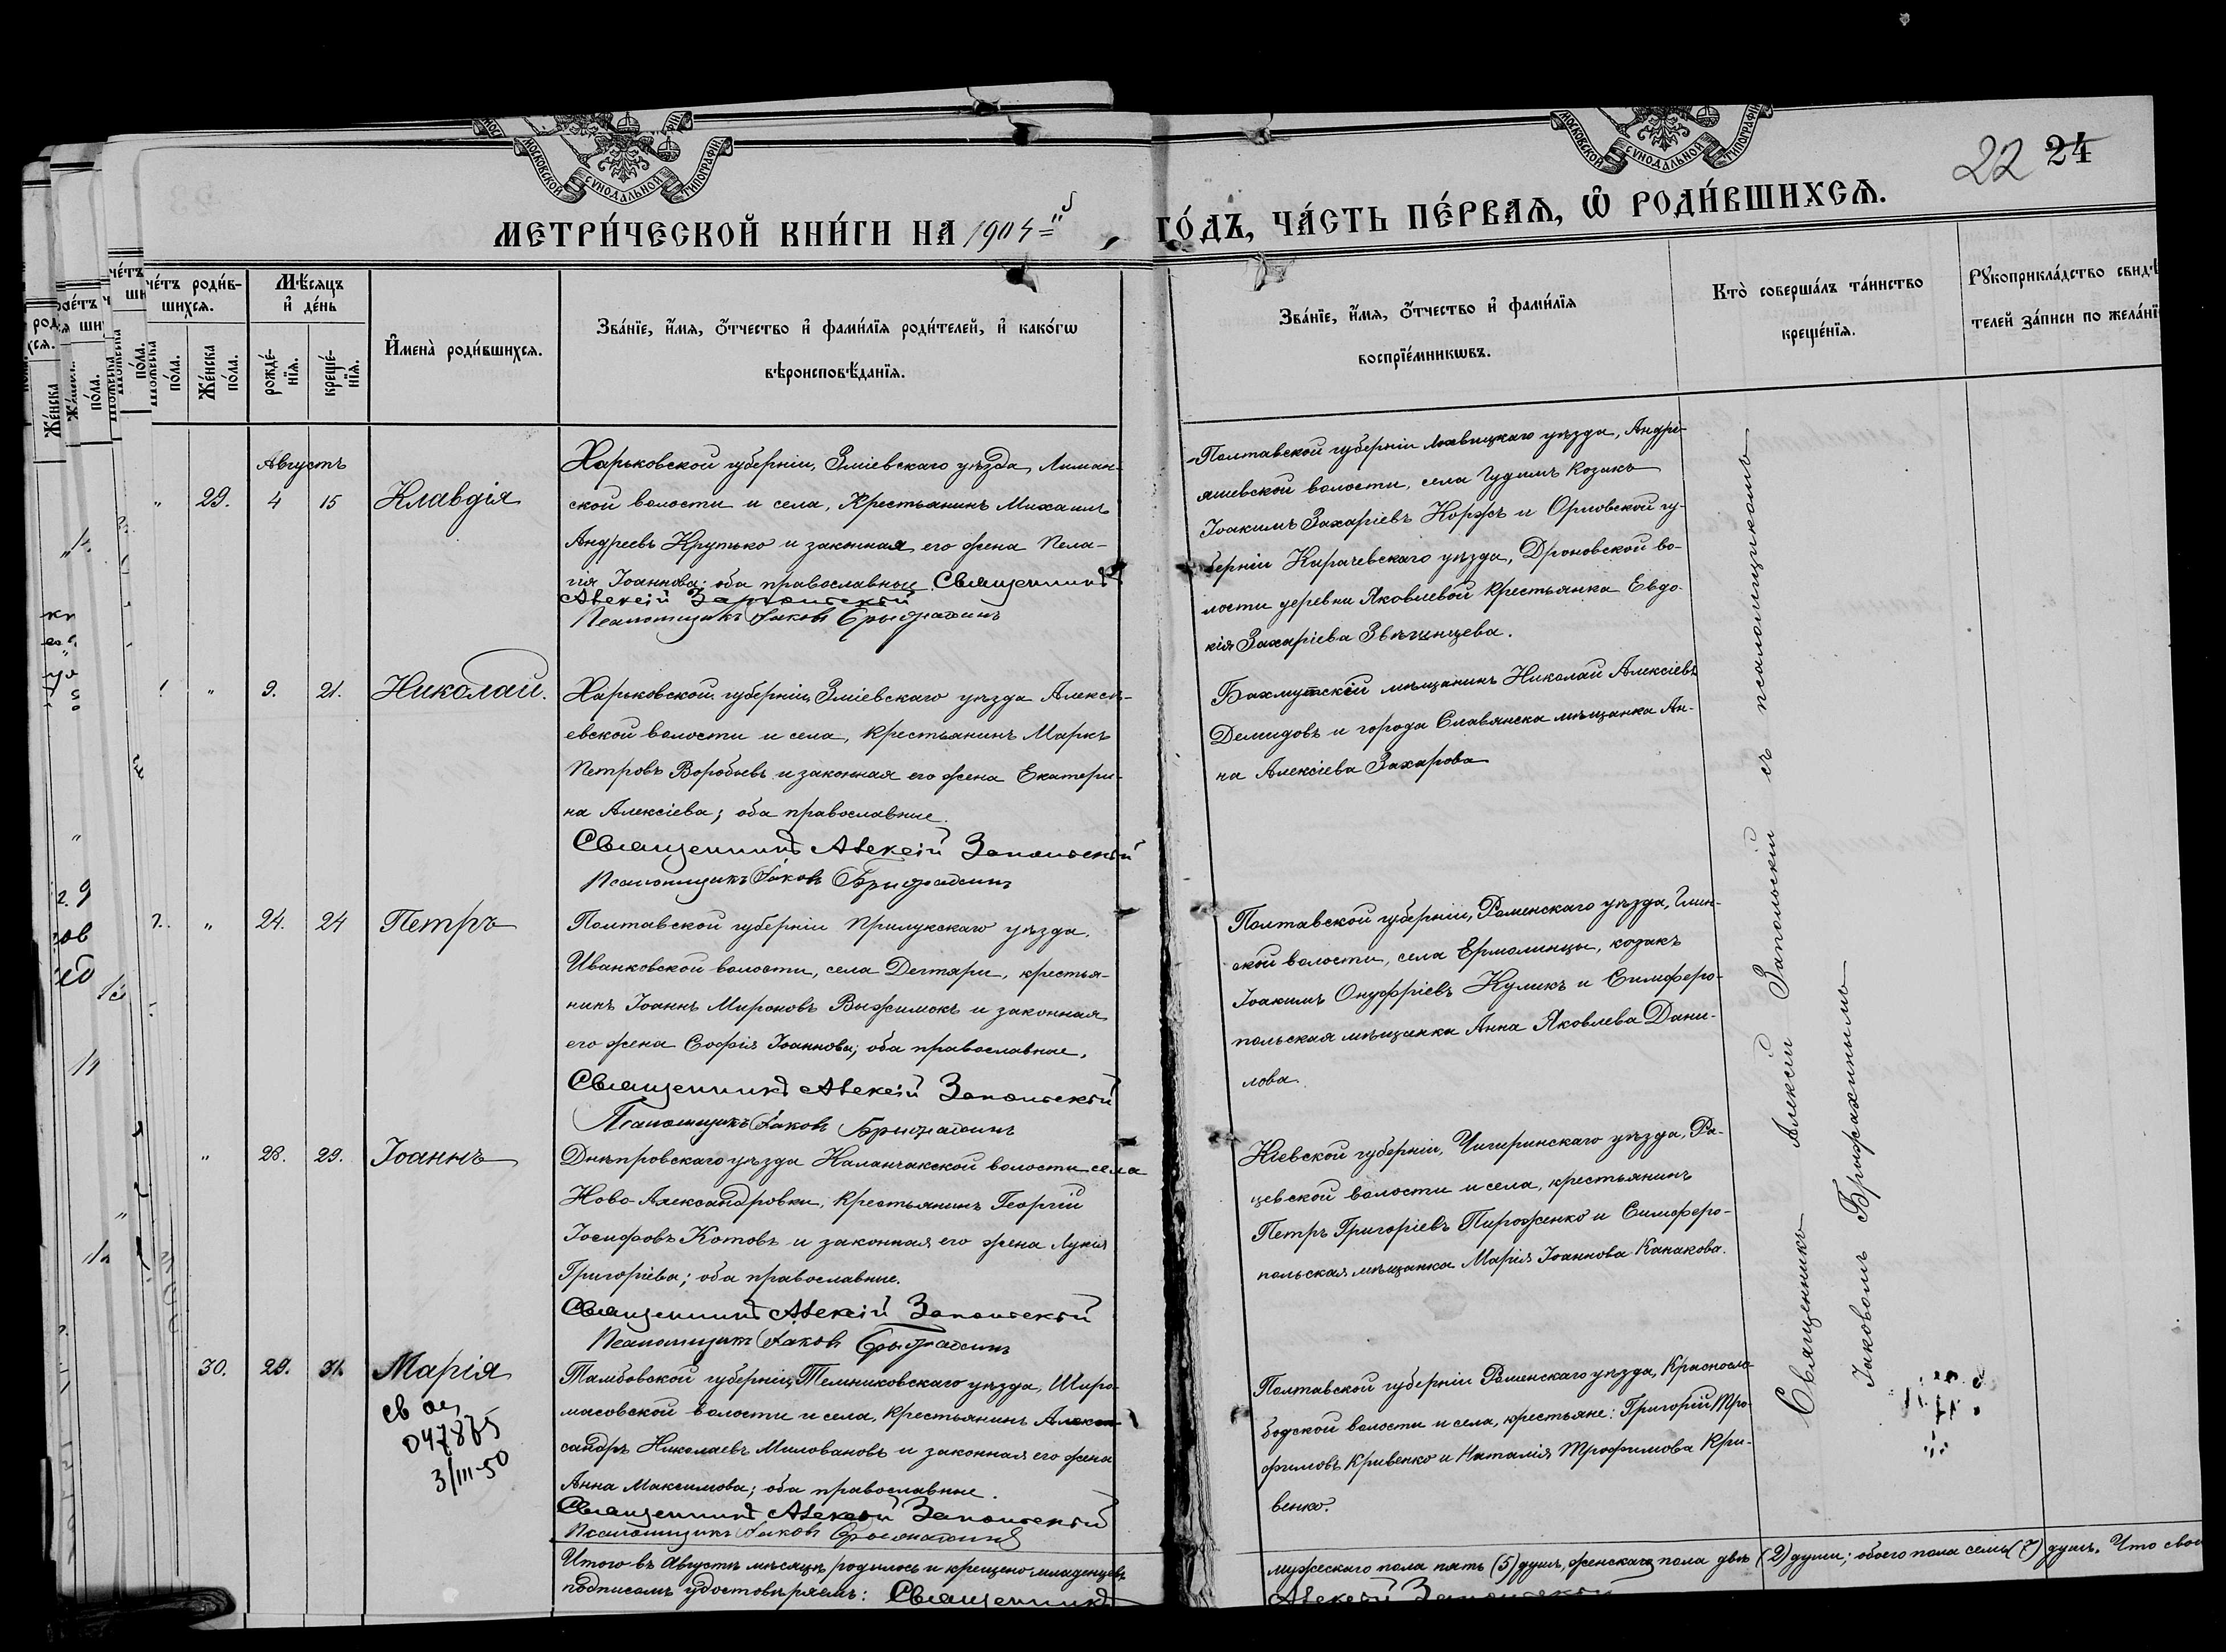 МОСКОВСКОЙ СУНОДАЛЬНОЙ ТИПОГРАФІИ
МОСКОВСКОЙ СУНОДАЛЬНОЙ ТИПОГРАФІИ
22 24
МЕТРИ́ЧЕСКОЙ КНИ́ГИ НА 1904
ГО́ДЪ, ЧА́СТЬ ПЕ́РВАѦ, Ѡ҆ РОДИ́ВШИХСѦ.
че́тъ роди́в-
шихся.
Же́нска
по́ла.
Мѣ́сяцъ
и҆ де́нь
рожде́-
нїя.
креще́-
нїя.
И҆мена̀ роди́вшихся.
Зва́нїе, и҆́мя, ѻ҆́тчество и҆ фами́лїя роди́телей, и҆ како́гѡ
вѣроисповѣ́данїя.
Зва́нїе, и҆́мя, ѻ҆́тчество и҆ фами́лїя
воспрїе́мникѡвъ.
Кто̀ соверша́лъ та́инство
креще́нїя.
Рꙋкоприкла́дство свидѣ́
телей за́писи по жела́нї
Августъ
" 29. 4 15 Клавдія
Харьковской губерніи, Зміевскаго уѣзда, Лиман-
ской волости и села, Крестьянинъ Михаилъ
Андреевъ Крутько и законная его жена Пела-
гія Іоаннова; оба православные. Священникъ
Алексій Запольскій
Псаломщикъ Іаковъ Брыжахинъ
Полтавской губерніи Лохвицкаго уѣзда, Андрі-
яшевской волости, села Гудимъ козакъ
Іоакимъ Захаріевъ Коржъ и Орловской гу-
берніи Карачевскаго уѣзда, Дроновской во-
лости деревни Яковлевой крестьянка Евдо-
кія Захаріева Звягинцева.
" 9. 21. Николай.
Харьковской губерніи, Зміевскаго уѣзда Алексѣ-
евской волости и села, крестьянинъ Маркъ
Петровъ Воробьевъ и законная его жена Екатери-
на Алексіева; оба православные.
Священникъ Алексій Запольскій
Псаломщикъ Іаковъ Брыжахинъ
Бахмутскій мѣщанинъ Николай Алексіевъ
Демидовъ и города Славянска мѣщанка Ан-
на Алексіева Захарова
" 24. 24 Петръ
Полтавской губерніи Прилукскаго уѣзда,
Иванковской волости, села Дегтяри, крестья-
нинъ Іоаннъ Мироновъ Выжимокъ и законная
его жена Софія Іоаннова; оба православные.
Священникъ Алексій Запольскій
Псаломщикъ Іаковъ Брыжахинъ
Полтавской губерніи, Роменскаго уѣзда, Глин-
ской волости, села Ермолинцы, козакъ
Іоакимъ Онуфріевъ Куликъ и Симферо-
польская мѣщанка Анна Яковлева Дани-
лова.
" 28. 29. Іоаннъ
Днѣпровскаго уѣзда Каланчакской волости села
Ново-Александровки, крестьянинъ Георгій
Іосифовъ Котовъ и законная его жена Лукія
Григоріева; оба православные.
Священникъ Алексій Запольскій
Псаломщикъ Іаковъ Брыжахинъ
Кіевской губерніи, Чигиринскаго уѣзда, Ра-
цевской волости и села, крестьянинъ
Петръ Григоріевъ Пироженко и Симферо-
польская мѣщанка Марія Іоаннова Канакова.
30. 29. 31. Марія
св
3/III-50
Тамбовской губерніи, Темниковскаго уѣзда, Широ-
масовской волости и села, крестьянинъ Алек-
сандръ Николаевъ Миловановъ и законная его жена
Анна Максимова; оба православные.
Священникъ Алексій Запольскій
Псаломщикъ Іаковъ Брыжахинъ
Полтавской губерніи Роменскаго уѣзда, Красносло-
бодской волости и села, крестьяне: Григорій Тро-
фимовъ Кривенко и Наталія Трофимова Кри-
венко.
Священникъ Алексій Запольскій съ псаломщикомъ
Іаковомъ Брыжахинымъ
Итого въ Августѣ мѣсяцѣ родилось и крещено младенцевъ
мужескаго пола пять (5) душъ, женскаго пола двѣ (2) души; обоего пола семь (7) душъ. Что свои
подписомъ удостовѣряемъ: Священникъ
Алексій Запольскій